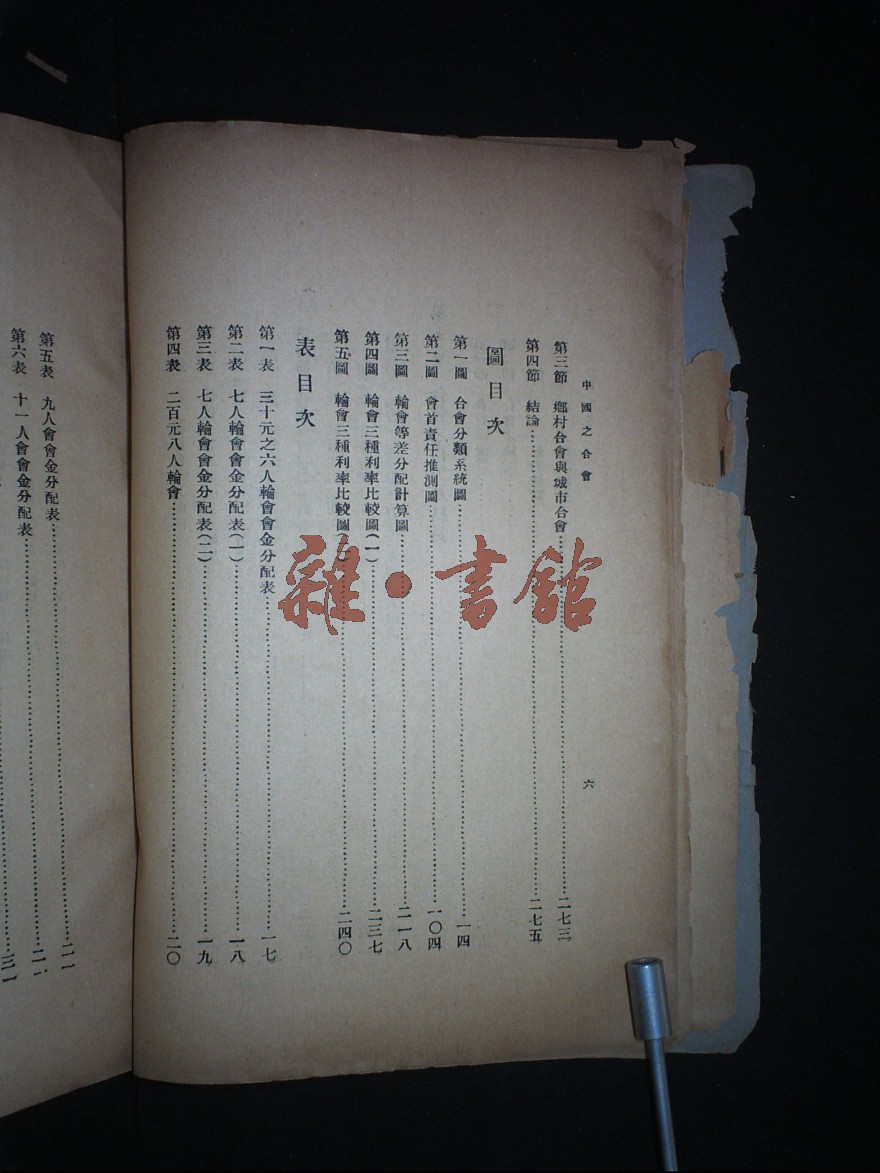 中國之合會
六
第三節 鄉村合會與城市合會……二七三
第四節 結論……二七五
圖目次
第一圖 合會分類系統圖……一四
第二圖 會首責任推測圖……一〇四
第三圖 輪會等差分配計算圖……二一八
第四圖 輪會三種利率比較圖(一)……二三七
第五圖 輪會三種利率比較圖……二四〇
表目次
第一表 三十元之六人輪會會金分配表……一七
第二表 七人輪會會金分配表(一)……一八
第三表 七人輪會會金分配表(二)……一九
第四表 二百元八人輪會……二〇
第五表 九人會會金分配表……二一
第六表 十一人會會金分配表
雜·書館